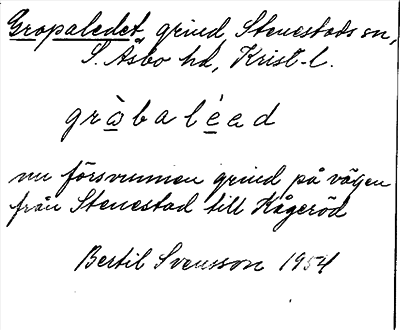 Gropaledet, grind, Stenestads sn,
S. Åsbo hd, Krist-l.
gràbaléad
nu försvunnen grind på vägen
från Stenestad till Kågeröd
Bertil Svensson 1954